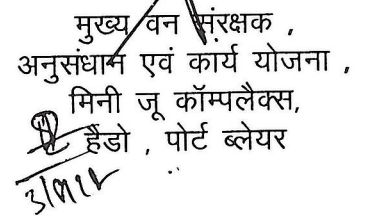 मुख्य वन संरक्षक ,
अनुसंधान एवं कार्य योजना ,
मिनी जू कॉम्पलैक्स,
हैडो , पोर्ट ब्लेयर